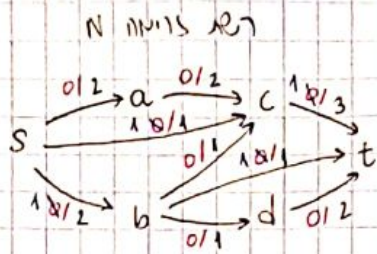 רשת זרימה N
0/2 a 0/2 c 1 0/3
S 1 0/1 0/1 1 0/1 t
1 0/2 b 0/1 d 0/2